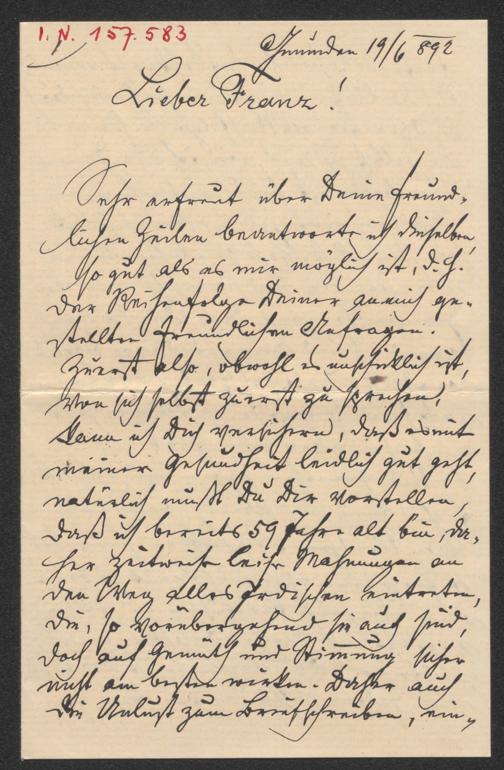 I. N. 157.583
Gmunden 19/6 892
Lieber Franz!
Sehr erfreut über Deine freund-
lichen Zeilen beantworte ich dieselben,
so gut als es mir möglich ist, d. h.
der Reihenfolge Deiner an mich ge-
stellten freundlichen Anfragen.
Zuerst also, obwohl es unschicklich ist,
von sich selbst zuerst zu sprechen,
kann ich Dich versichern, daß es mit
meiner Gesundheit leidlich gut geht,
natürlich mußt Du Dir vorstellen,
daß ich bereits 59 Jahre alt bin, da-
her zeitweise leise Mahnungen an
den Weg alles Irdischen eintreten,
die, so vorübergehend sie auch sind,
doch auf Gemüth und Stimmung sicher
nicht am besten wirken. Daher auch
die Unlust zum Briefschreiben, ein-